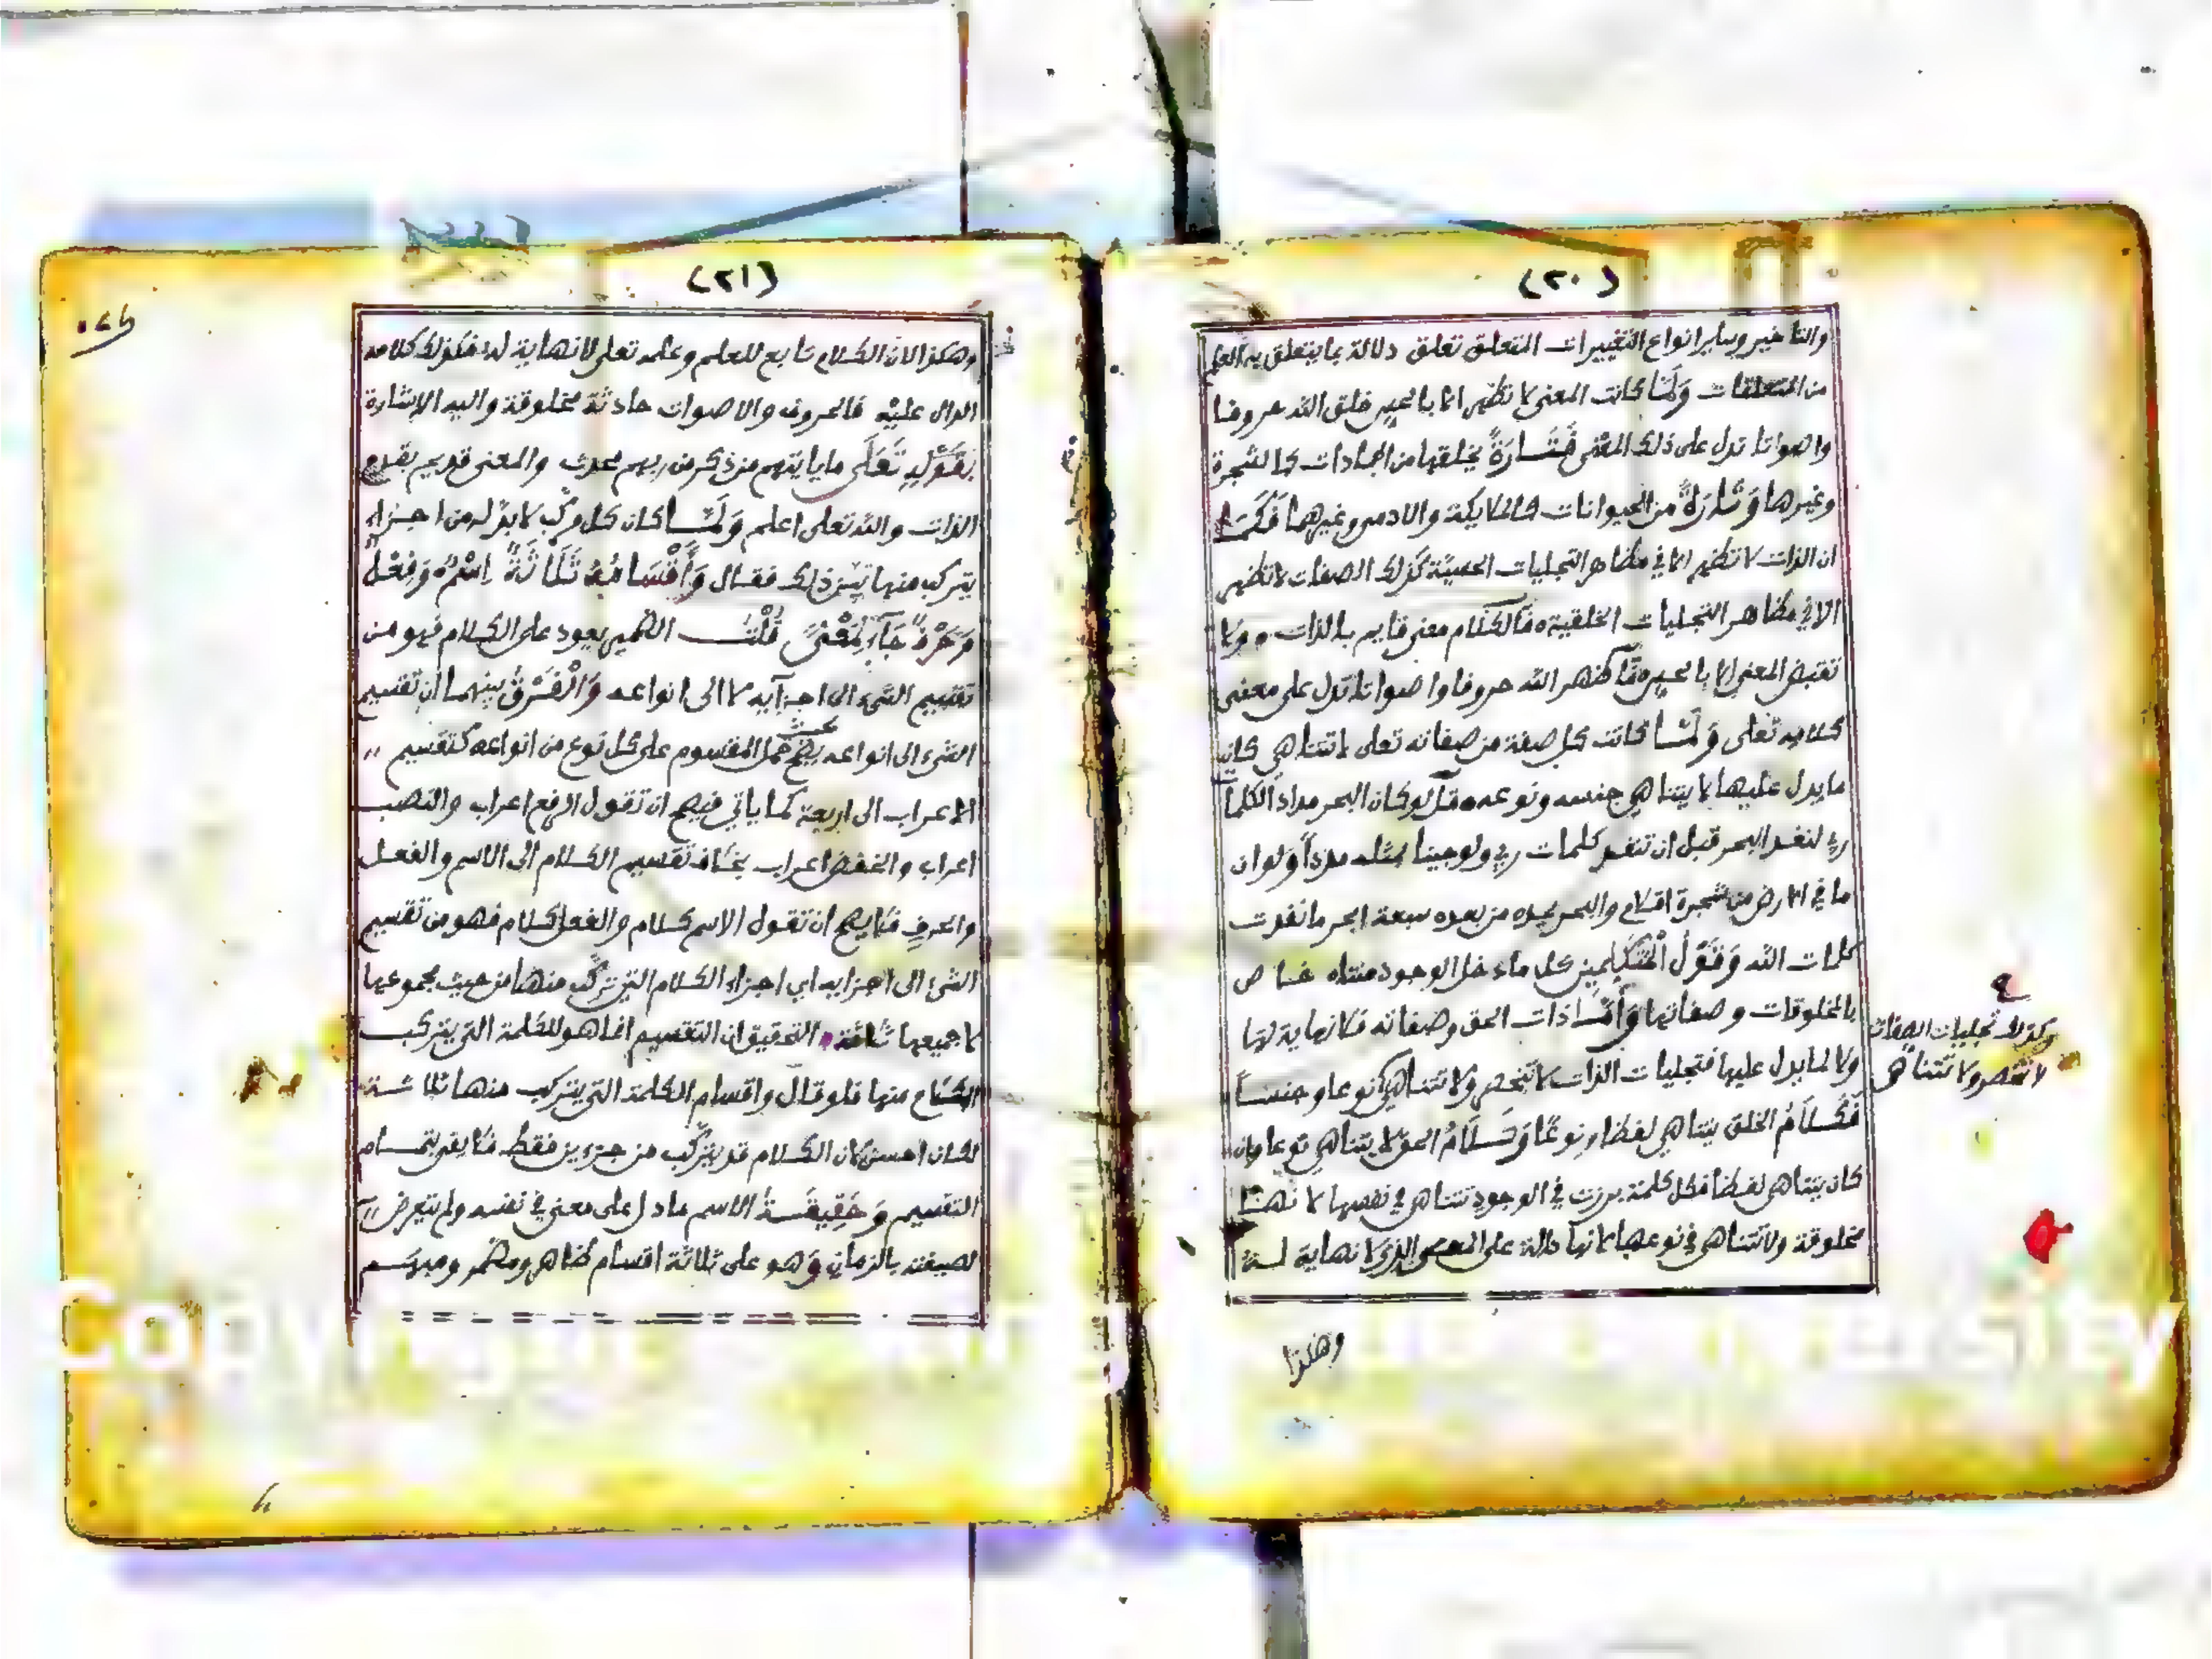 (٢٠)
والتاخير وساير انواع التغييرات المتعلق تعلق دلالة بما يتعلق به العلم
من المتعلقات وَلَمَّا كانت المعنى لا تظهر الا بالحس خلق الله حروفا
واصواتا تدل على ذلك المعنى فَتَارَةً يخلقها من الجمادات كالشجرة
وغيرها وَتَارَةً من الحيوانات كالملايكة والادمى وغيرهما فَكَمَا
ان الذات لا تظهر الا في مظاهر التجليات الحسية كذلك الصفات لا تظهر
الا في مظاهر التجليات الخلقية فالكلام معنى قايم بالذات ولا
تقبض المعنى الا بالحس فاظهر الله حروفا واصواتا تدل على معنى
كلامه تعلى وَلَمَّا كانت كل صفة من صفاته تعلى لا تتناهي كان
ما يدل عليها لا يتناهي جنسه ونوعه قل لو كان البحر مدادا لكلمات
ربي لنفد البحر قبل ان تنفد كلمات ربي ولو جينا بمثله مددا وَلو ان
ما في الارض من شجرة اقلام والبحر يمده من بعده سبعة ابحر ما نفدت
كلمات الله وَقَوْلُ الْمُتَكَلِّمِين كل ما دخل الوجود متناه خاص
بالمخلوقات وصفاتها وَأَمَّا ذات الحق وصفاته فلا نهاية لها
ولا لما يدل عليها فتجليات الذات لا تنحصر ولا تتناهي نوعا وجنسا
وكذلك تجليات الصفات
لا تنحصر ولا تتناهى
فَكَلَامُ الخلق يتناهي لفظا ونوعًا وَكَلَامُ الحق لا يتناهي نوعا وان
كان يتناهى لفظا فكل كلمة برزت في الوجود تتناهى في نفسها لانها
مخلوقة ولا تتناهى في نوعها لانها دالة على المعنى الذي لا نهاية له
وهكذا
(٢١)
وهكذا لان الكلام تابع للعلم وعلمه تعلى لا نهاية له فكذلك كلامه
الدال عليه فالحروف والاصوات حادثة مخلوقة واليه الاشارة
بِقَوْلِهِ تَعَلَى ما ياتيهم من ذكر من ربهم محدث والمعنى قديم بقدم
الذات والله تعلى اعلم وَلَمَّا كان كل مركب لا بد له من اجزاء
يتركب منها بيّن ذلك فقال وَأَقْسَامُهُ ثَلَاثَةٌ اِسْمٌ وَفِعْلٌ
وَحَرْفٌ جَآءَ لِمَعْنًى قُلْتُ الضمير يعود على الكلام فهو من
تقسيم الشيء الى اجزآيه لا الى انواعه وَالْفَرْقُ بينهما ان تقسيم
الشيء الى انواعه يصح حمل المقسوم على كل نوع من انواعه كتقسيم
الاعراب الى اربعة كما ياتي فيصح ان تقول الرفع اعراب والنصب
اعراب والخفض اعراب بخلاف تقسيم الكلام الى الاسم والفعل
والحرف فلا يصح ان تقول الاسم كلام والفعل كلام فهو من تقسيم
الشيء الى اجزايه اي اجزاء الكلام التي تركب منها من حيث مجموعها
لا جميعها ثلاثة التحقيق ان التقسيم انما هو للكلمة التي يتركب
الكلام منها فلو قال واقسام الكلمة التي يتركب منها ثلاثة
لكان احسن لان الكلام قد يتركب من جزءين فقط فلا يفي بتمام
التقسيم وَحَقِيقَةُ الاسم ما دل على معنى في نفسه ولم يتعرض
لصيغته بالزمان وَهو على ثلاثة اقسام ظاهر ومضمر ومبهم